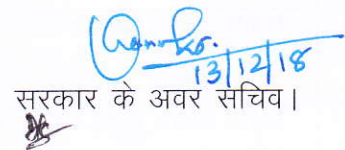 13/12/18
सरकार के अवर सचिव।